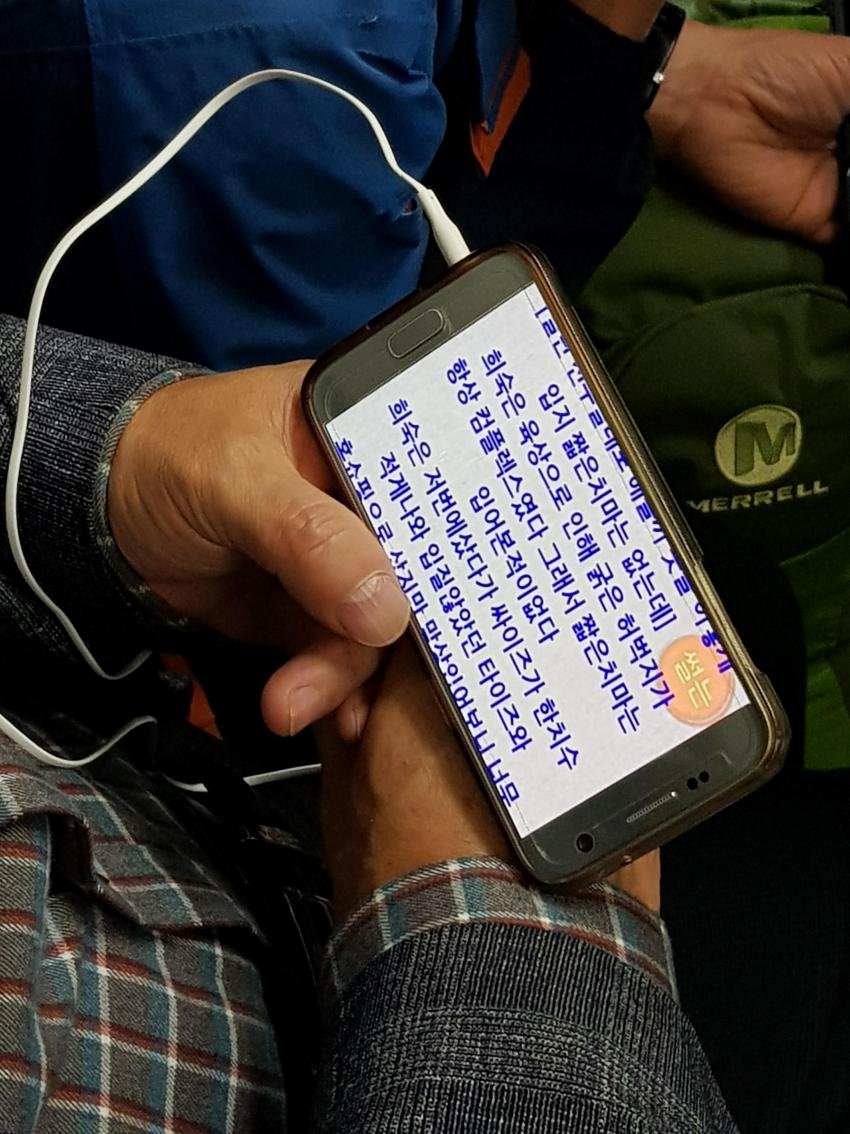 입지 짧은치마는 없는데]
희숙은 육상으로 인해 굵은 허벅지가
항상 컴플렉스였다 그래서 짧은치마는
입어본적이없다
희숙은 저번에샀다가 싸이즈가 한치수
적게나와 입질않았던 타이즈와
홈쇼핑으로 너무
썰는
MERRELL